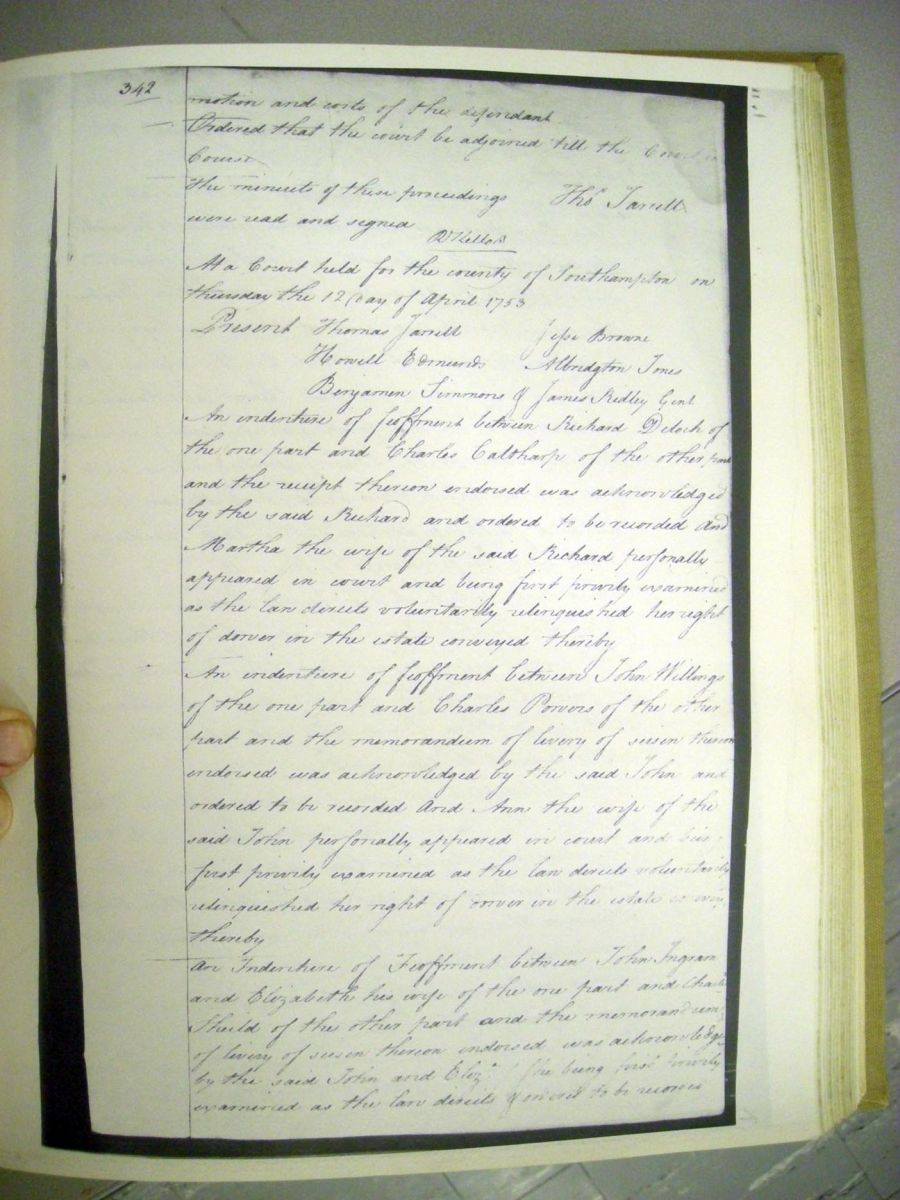 342
motion and costs of the defendant
Ordered that the court be adjorned till the Court in
Course
The minuets of these proceedings Thos Jarrell
were read and signed
At a Court held for the county of Southampton on
thursday the 12 Day of April 1753
Present Thomas Jarrell Jesse Browne
Howell Edmunds Albridgton Jones
Benjamen Simmons & James Ridley Gent
An indenture of feoffment between Richard Deloch of
the one part and Charles Caltharp of the other part
and the receipt thereon endorsed was acknowledged
by the said Richard and ordered to be recorded And
Martha the wife of the said Richard personally
appeared in court and being first privily examined
as the law directs voluntarily relinquished her right
of dower in the estate conveyed thereby
An indenture of feoffment between John Willings
of the one part and Charles Powers of the other
part and the memorandum of livery of seisen thereon
endorsed was acknowledged by the said John and
ordered to be recorded And Ann the wife of the
said John personally appeared in court and
first privily examined as the law directs voluntarily
relinquished her right of dower in the estate
thereby
An Indenture of Feoffment between John Ingram
and Elizabeth his wife of the one part and Charles
Sheild of the other part and the memorandum
of livery of seesen thereon endorsed was acknowledged
by the said John and Eliza She being first privily
examined as the law directs & to be